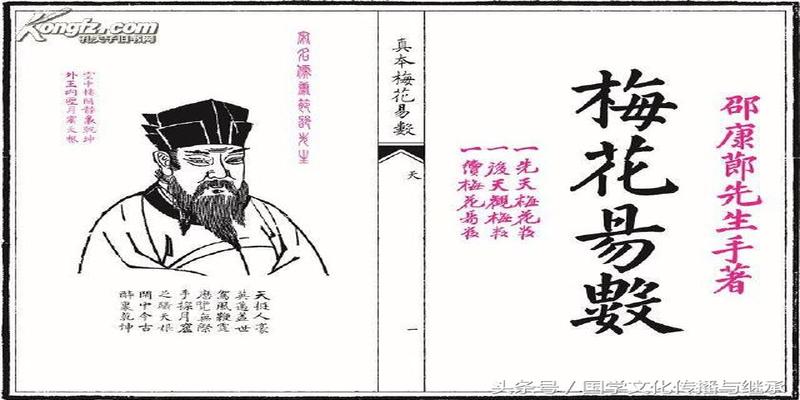 邵康節先生手著
梅花易數
一先天梅花數
一後天觀梅數
一價梅花易數
真本梅花易數
天
一
宋名儒康節邵先生
空中樓閣静裏乾坤
外王内聖月窟天根
天挺人豪
英邁蓋世
駕風鞭霆
歷覽無際
手探月窟
足躡天根
閒中今古
醉裏乾坤
Kongfz.com
孔夫子旧书网
头条号/国学文化传播与继承